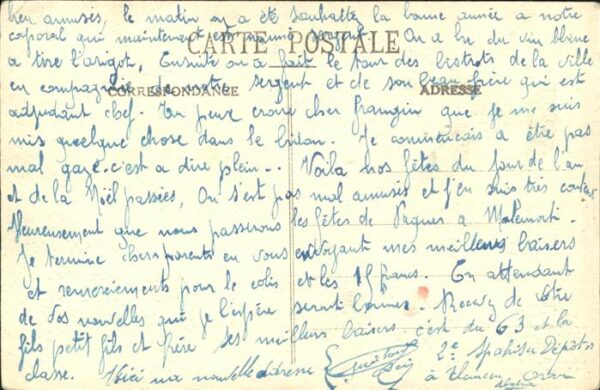 bien amusés, le matin on a été souhaitez la bonne année a notre
caporal qui maintenant est nommé sergent. On a bu du vin blanc
CARTE POSTALE
a tire l'arigot, Ensuite on a fait le tour des bistrots de la ville
en compagnie de notre sergent et de son beau frère qui est
CORRESPONDANCE
ADRESSE
adjudant chef. Tu peux croire cher frangin que je me suis
mis quelque chose dans le bidon. Je commencais a être pas
mal gaze. c'est a dire plein.. Voila nos fêtes du jour de l'an
et de la Noël passées, On s'est pas mal amusés et j'en suis très content
Heureusement que nous passerons les fêtes de Paques a
Je termine chers parents en vous envoyant mes meilleurs baisers
et remerciements pour le colis et les 15 francs. En attendant
de vos nouvelles qui je l'espère seront bonnes. Recevez de votre
fils petit fils et frère ses meilleurs baisers. c'est du 63 et la
classe. Voici ma nouvelle adresse 2e Spahis
à Tlemcen Oran